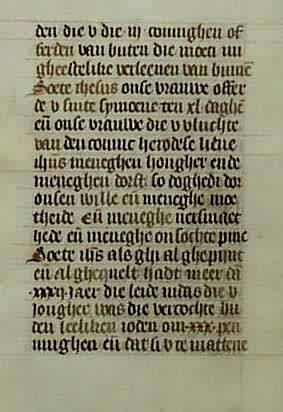 den die v die iij coninghen of
ferden van buten die moeti mi
gheestelike verleenen van binnē
Soete ihesus onse vrauwe offer
de v sinte symoene ten xl daghē
eñ onse vrauwe die v vluchte
van den coninc herodese lieue
ihūs meneghen hongher ende
meneghen dorst so doghedi dor
onsen wille eñ meneghe moe
theide Eñ meneghe versmaet
hede eñ meneghe onsochte pine
Soete ihūs als ghi al ghepijnt
en al ghequelt hadt meer dā
xxxij jaer die leide iudas die v
jongher was die vercochte hu
den leeliken ioden om xxx pen
ninghen eñ dat si v te mattene